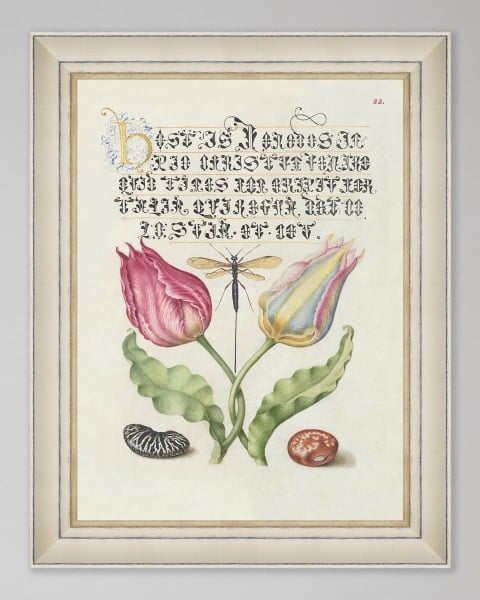 23.
HOSTIS HERODES IM
PIE CHRISTUM VENIRE
QUID TIMES NON ERIPIT MOR
TALIA, QUI REGNA DAT CO
LESTIA. ET. CET.